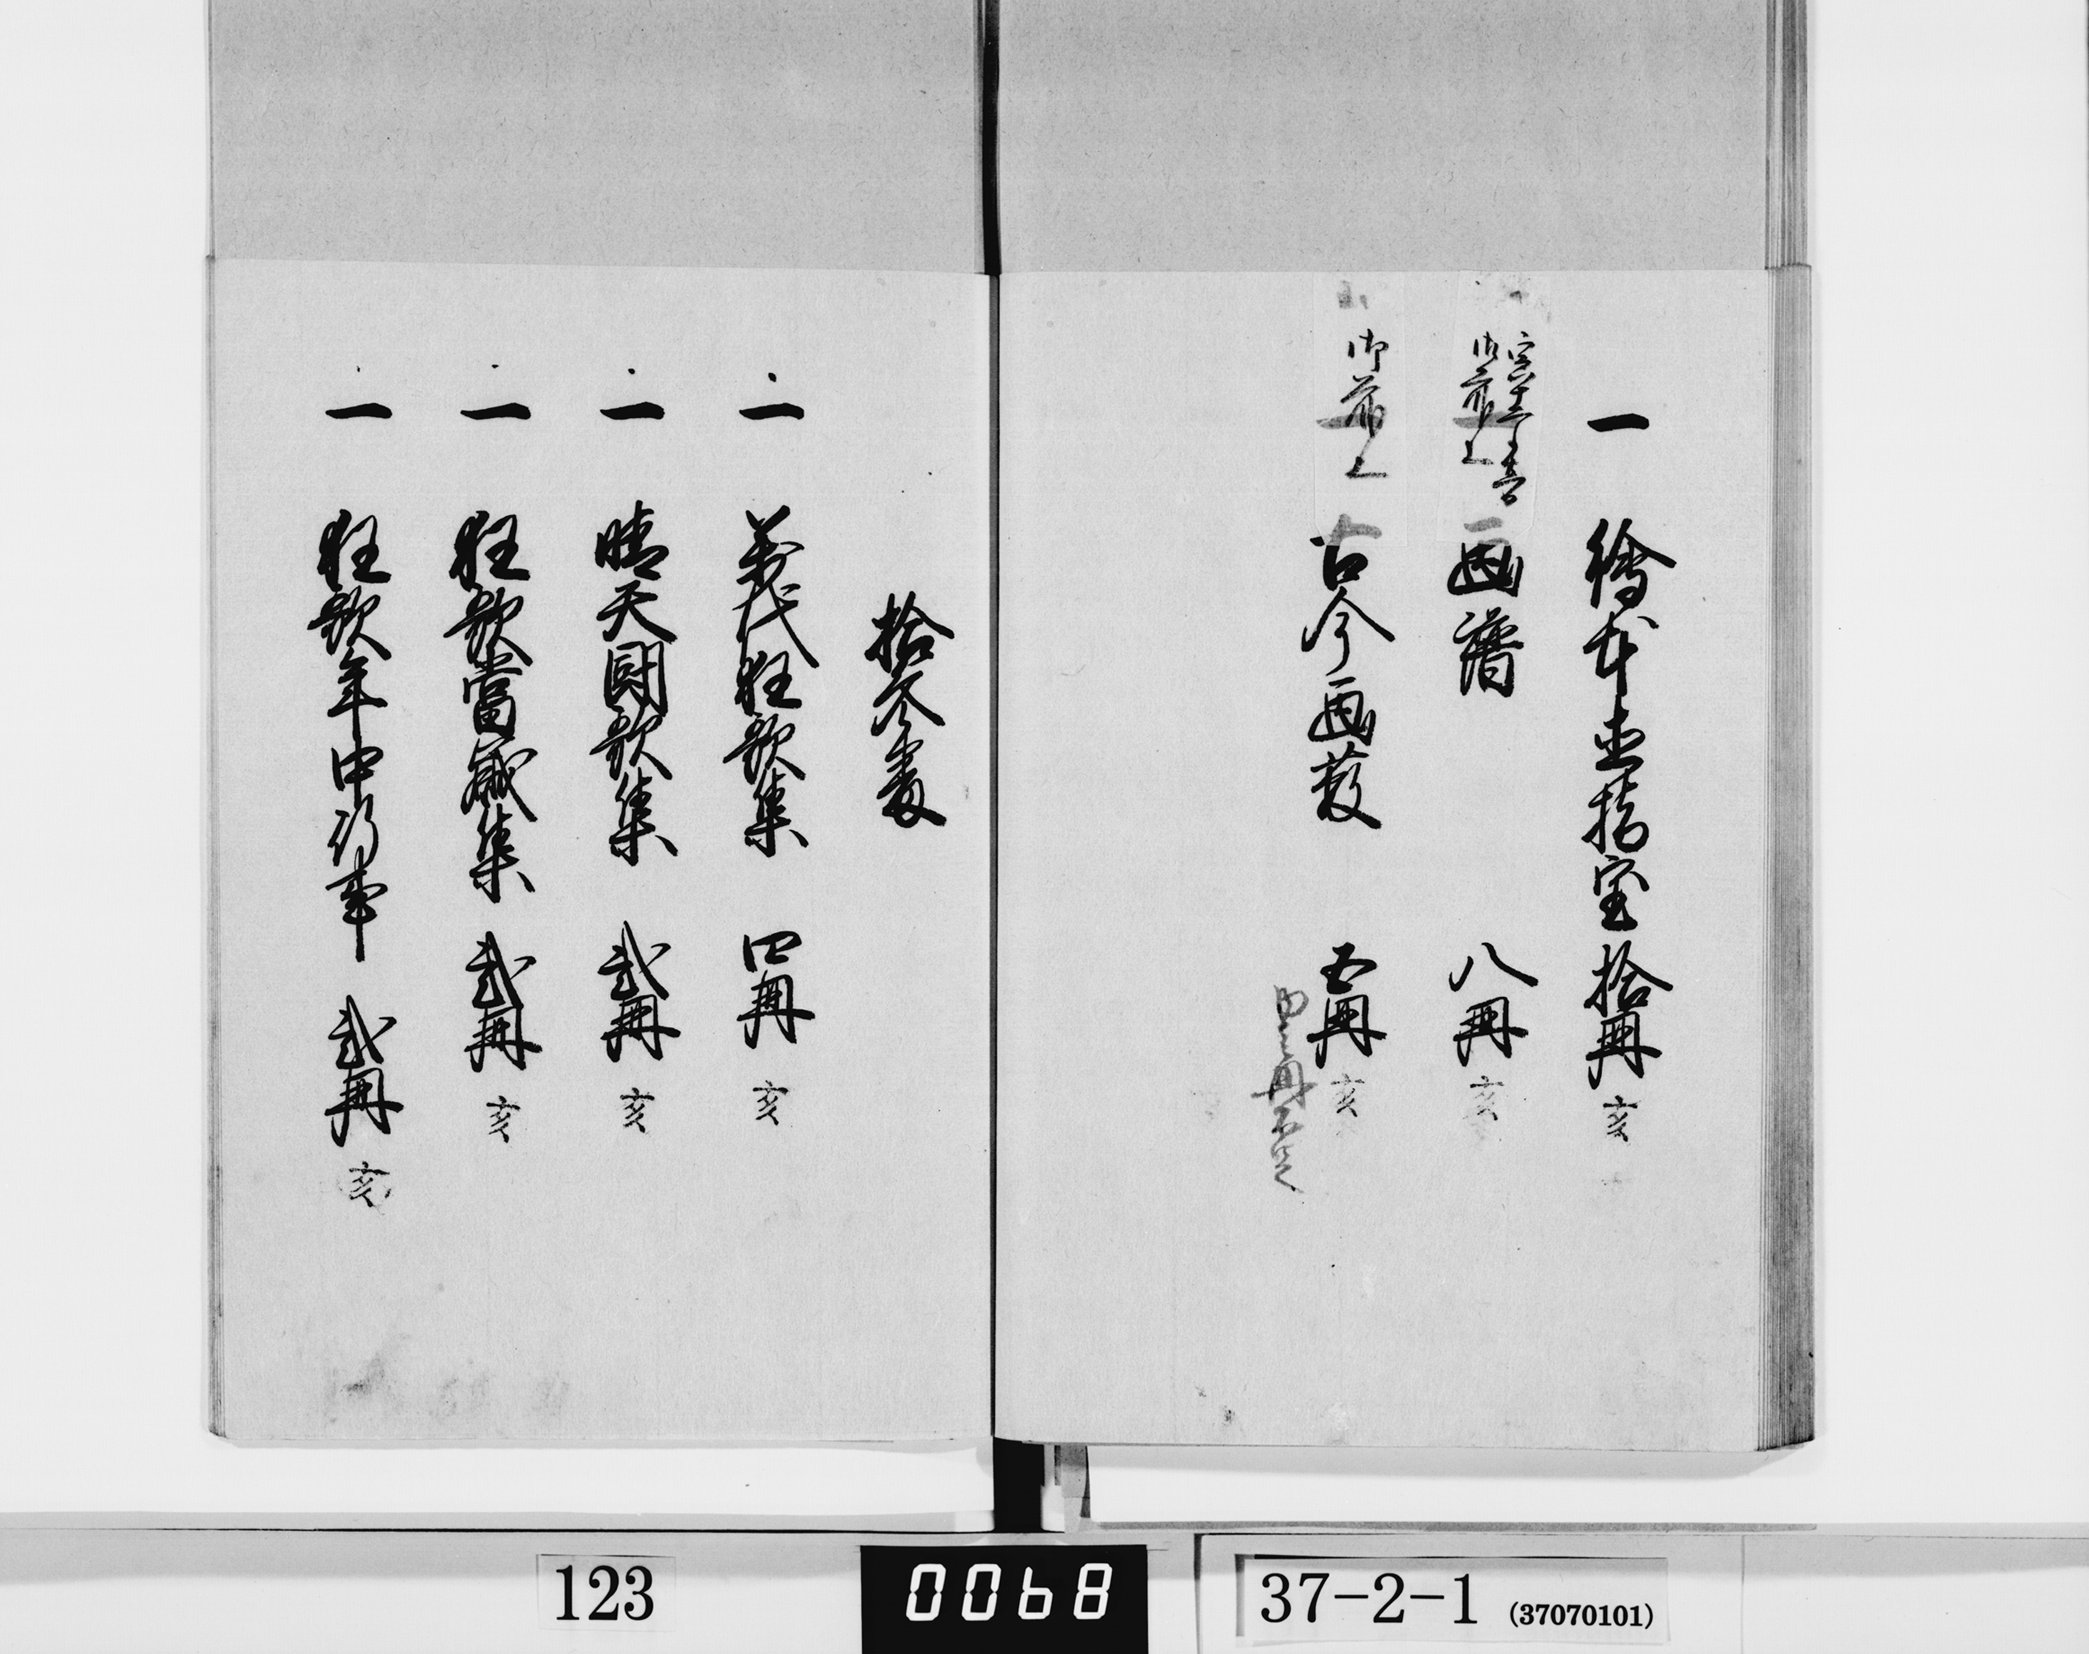 一 繪本直指宝 拾冊 亥
御前上
一 画譜 八冊 亥
御前上
一 古今画薮 五冊 亥
冊不足
拾参番
一 萬代狂歌集 四冊 亥
一 晴天闘歌集 弐冊 亥
一 狂歌當載集 弐冊 亥
一 狂歌年中行事 弐冊 亥
123
0068
37-2-1 (37070101)